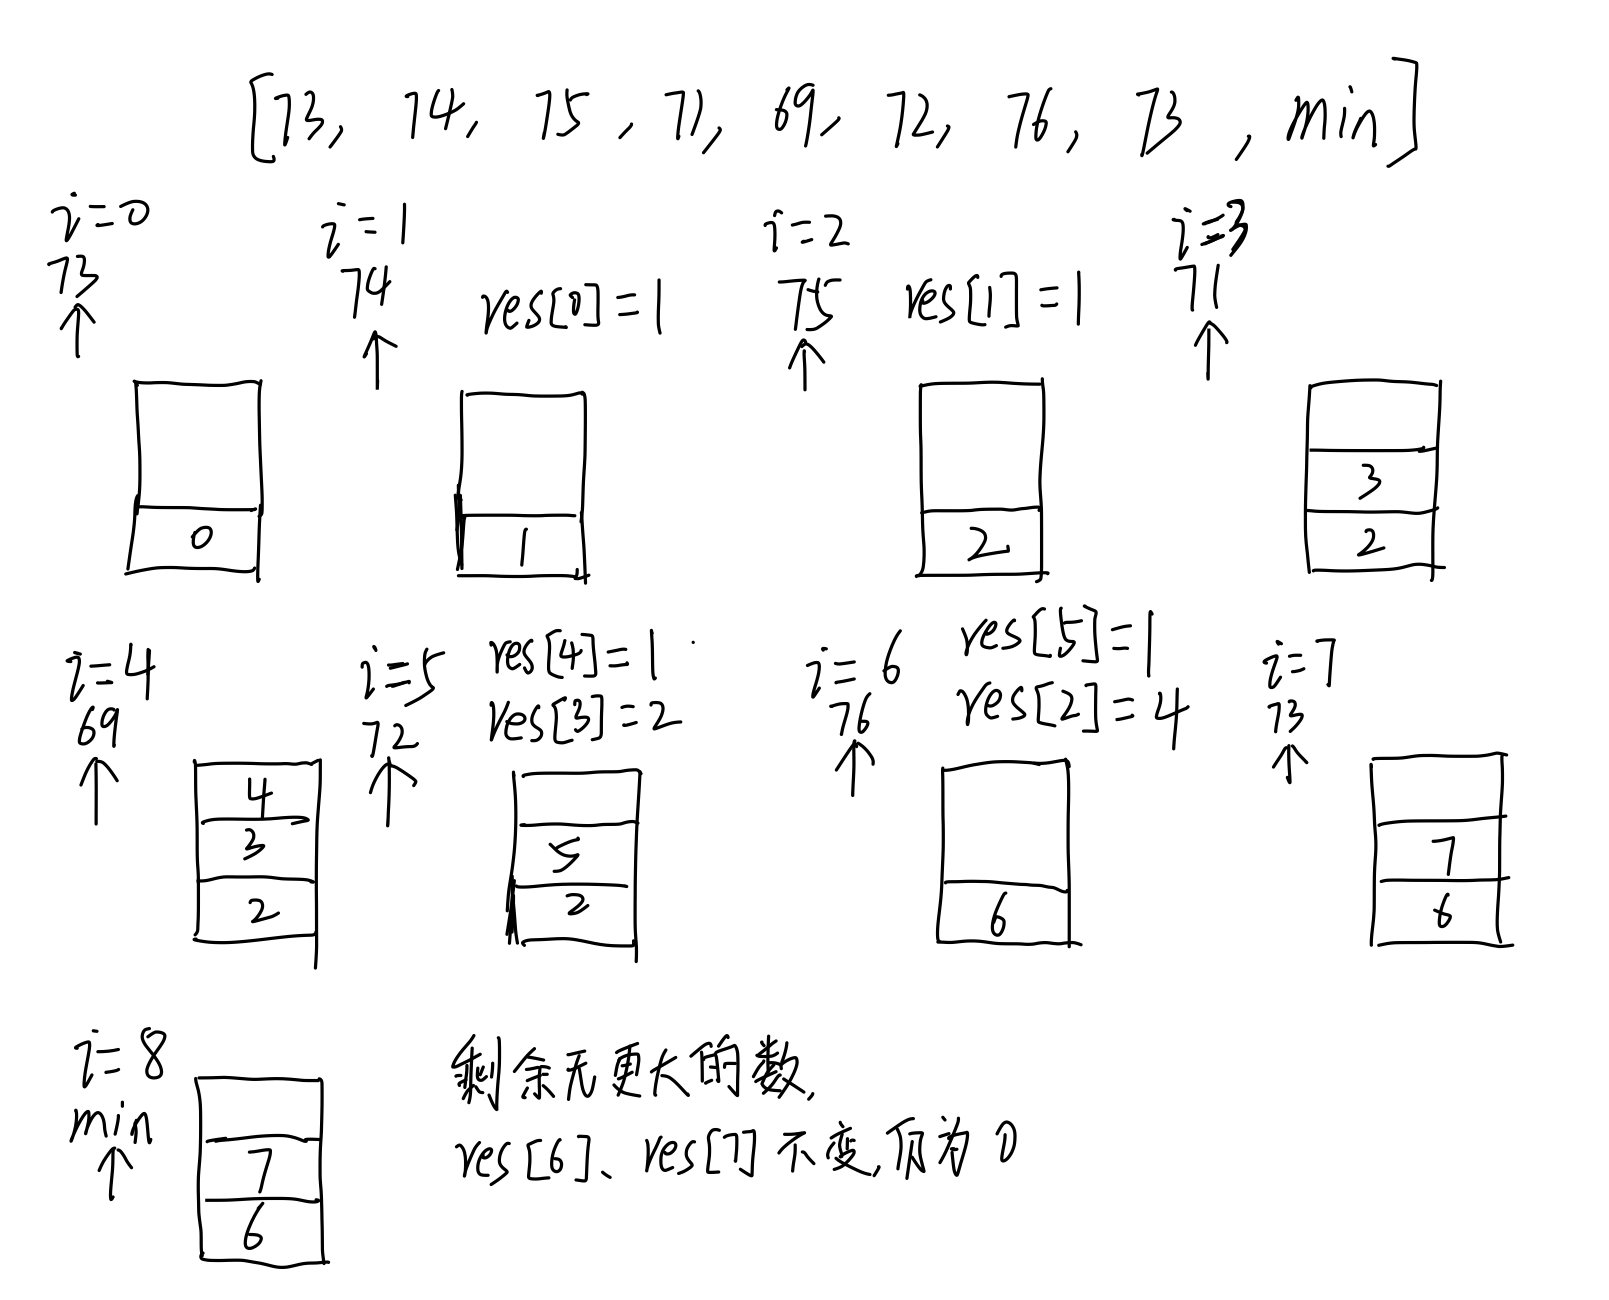 [73, 74, 75, 71, 69, 72, 76, 73, min]
i=0
73
0
i=1
74
res[0]=1
1
i=2
75
res[1]=1
2
i=3
71
3
2
i=4
69
4
3
2
i=5
72
res[4]=1
res[3]=2
5
2
i=6
76
res[5]=1
res[2]=4
6
i=7
73
7
6
i=8
min
7
6
剩余无更大的数,
res[6]、res[7]不变,仍为0